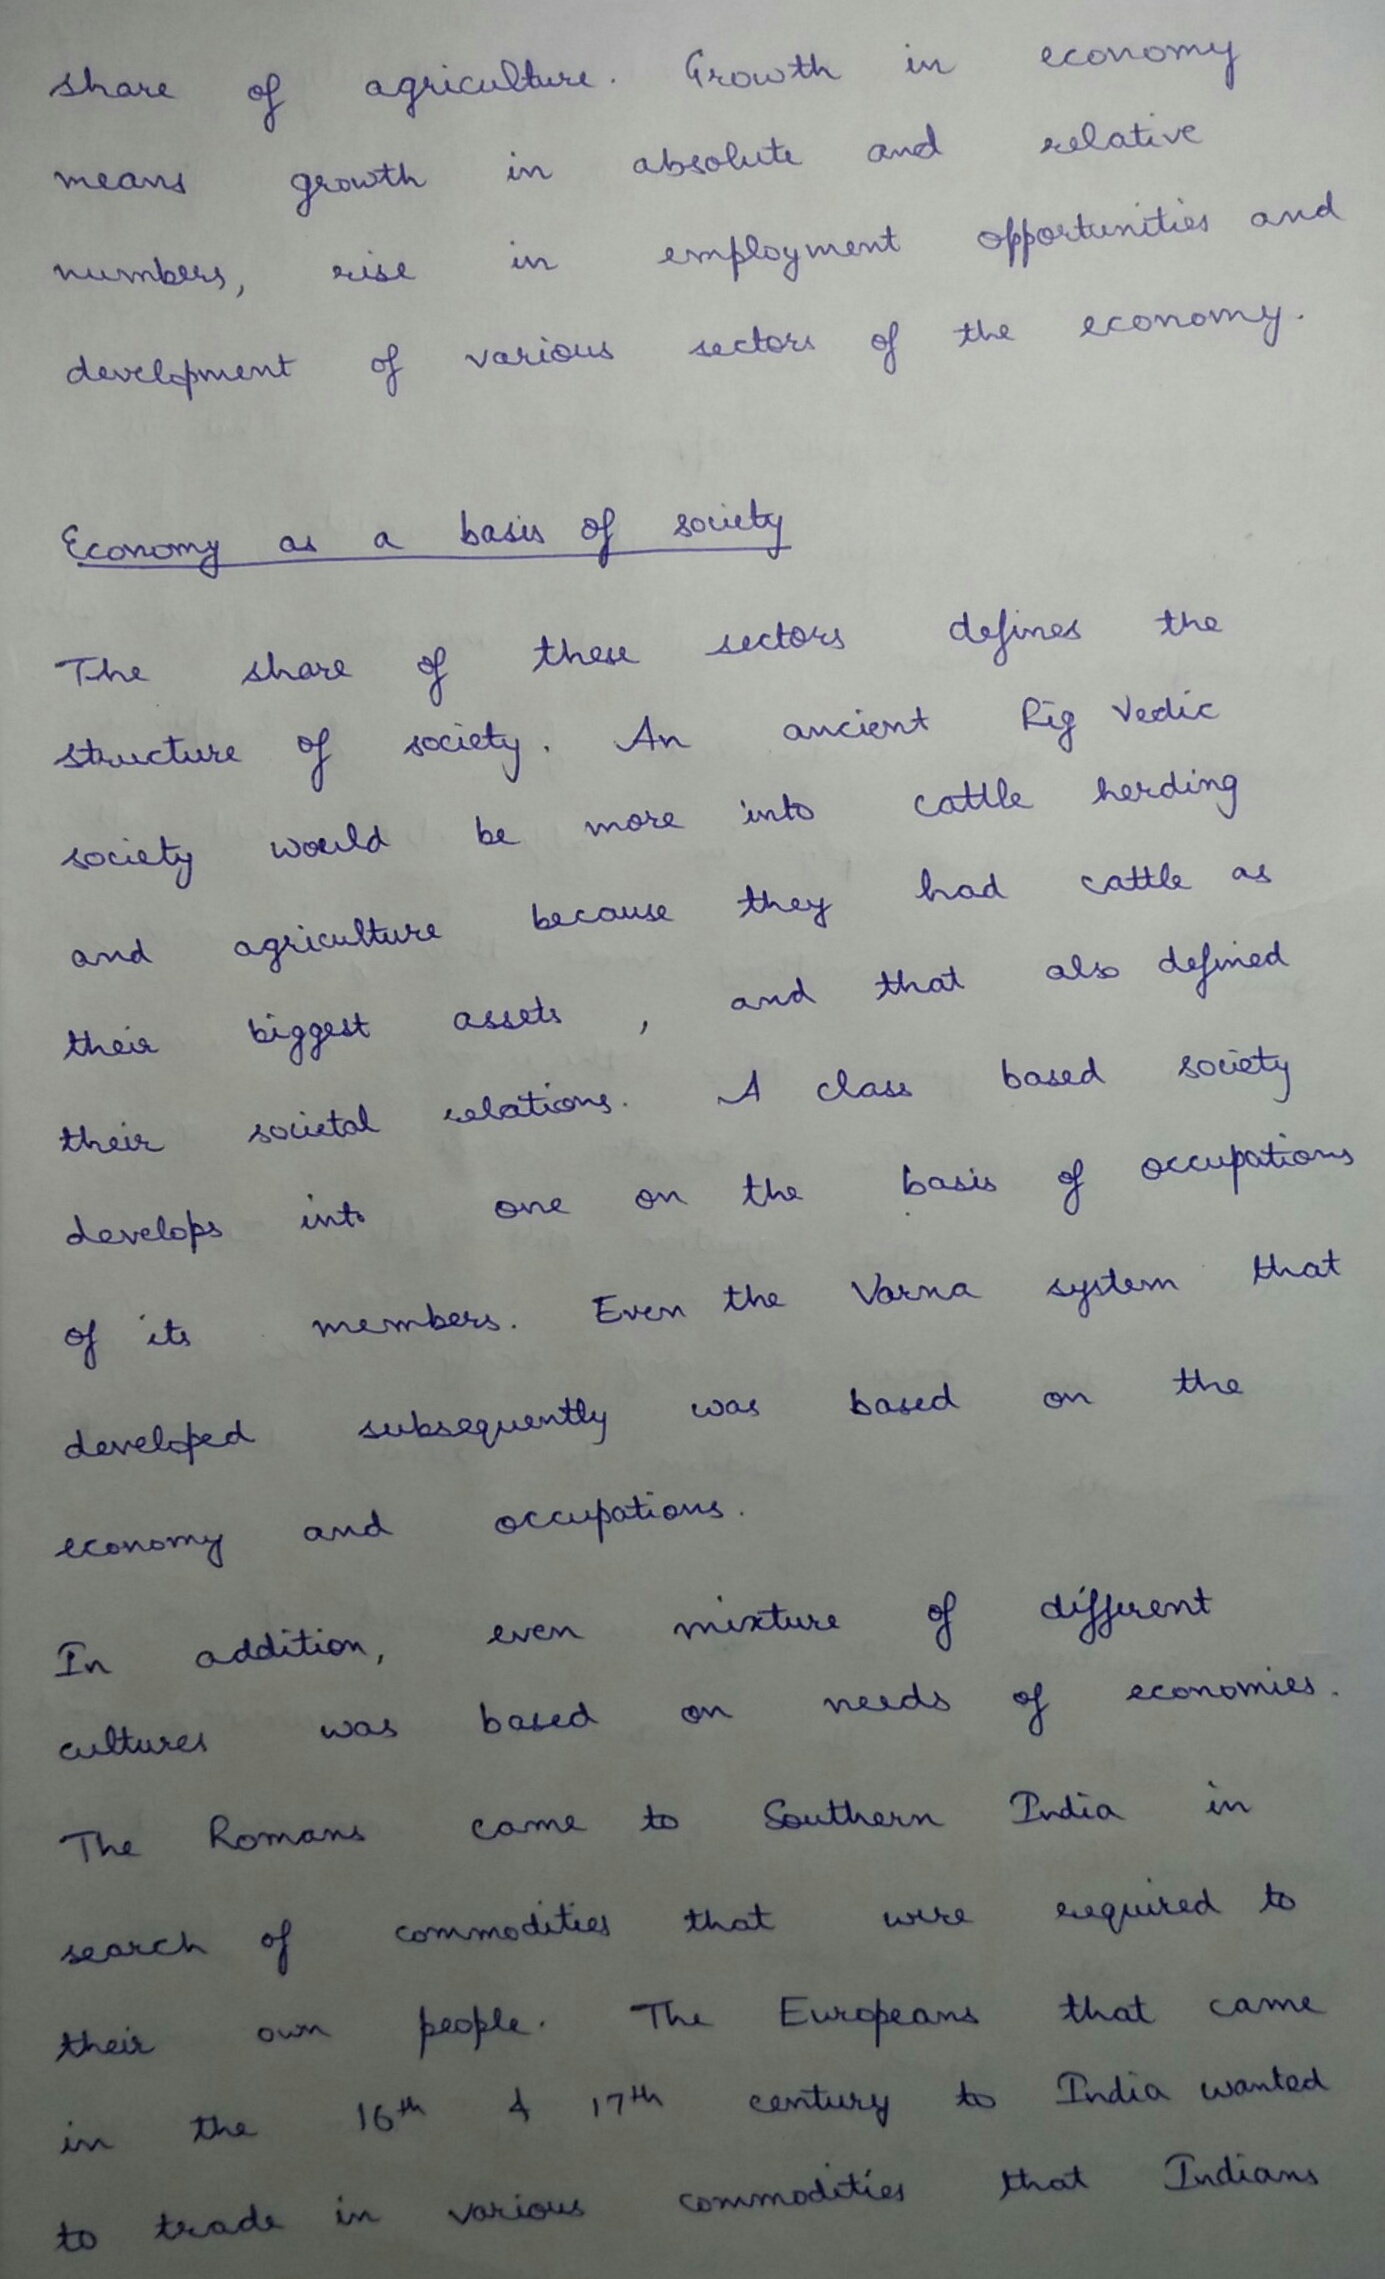 share of agriculture. Growth in economy
means growth in absolute and relative
numbers, rise in employment opportunities and
development of various sectors of the economy.
Economy as a basis of society
The share of these sectors defines the
structure of society. An ancient Rig Vedic
society would be more into cattle herding
and agriculture because they had cattle as
their biggest assets, and that also defined
their societal relations. A class based society
develops into one on the basis of occupations
of its members. Even the Varna system that
developed subsequently was based on the
economy and occupations.
In addition, even mixture of different
cultures was based on needs of economies.
The Romans came to Southern India in
search of commodities that were required to
their own people. The Europeans that came
in the 16th & 17th century to India wanted
to trade in various commodities that Indians